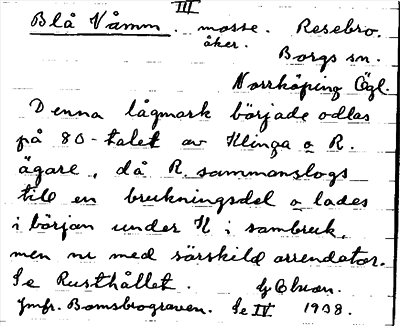 III
Blå Våmm. mosse. Resebro.
åker. Borgs sn.
Norrköping Ögl.
Denna lågmark började odlas
på 80-talet av Klinga o R.
ägare, då R. sammanslogs
till en brukningsdel o lades
i början under K i sambruk,
men nu med särskild arrendator.
Se Rusthållet.
Jmfr. Bomsbrograven. Se IV 1938.